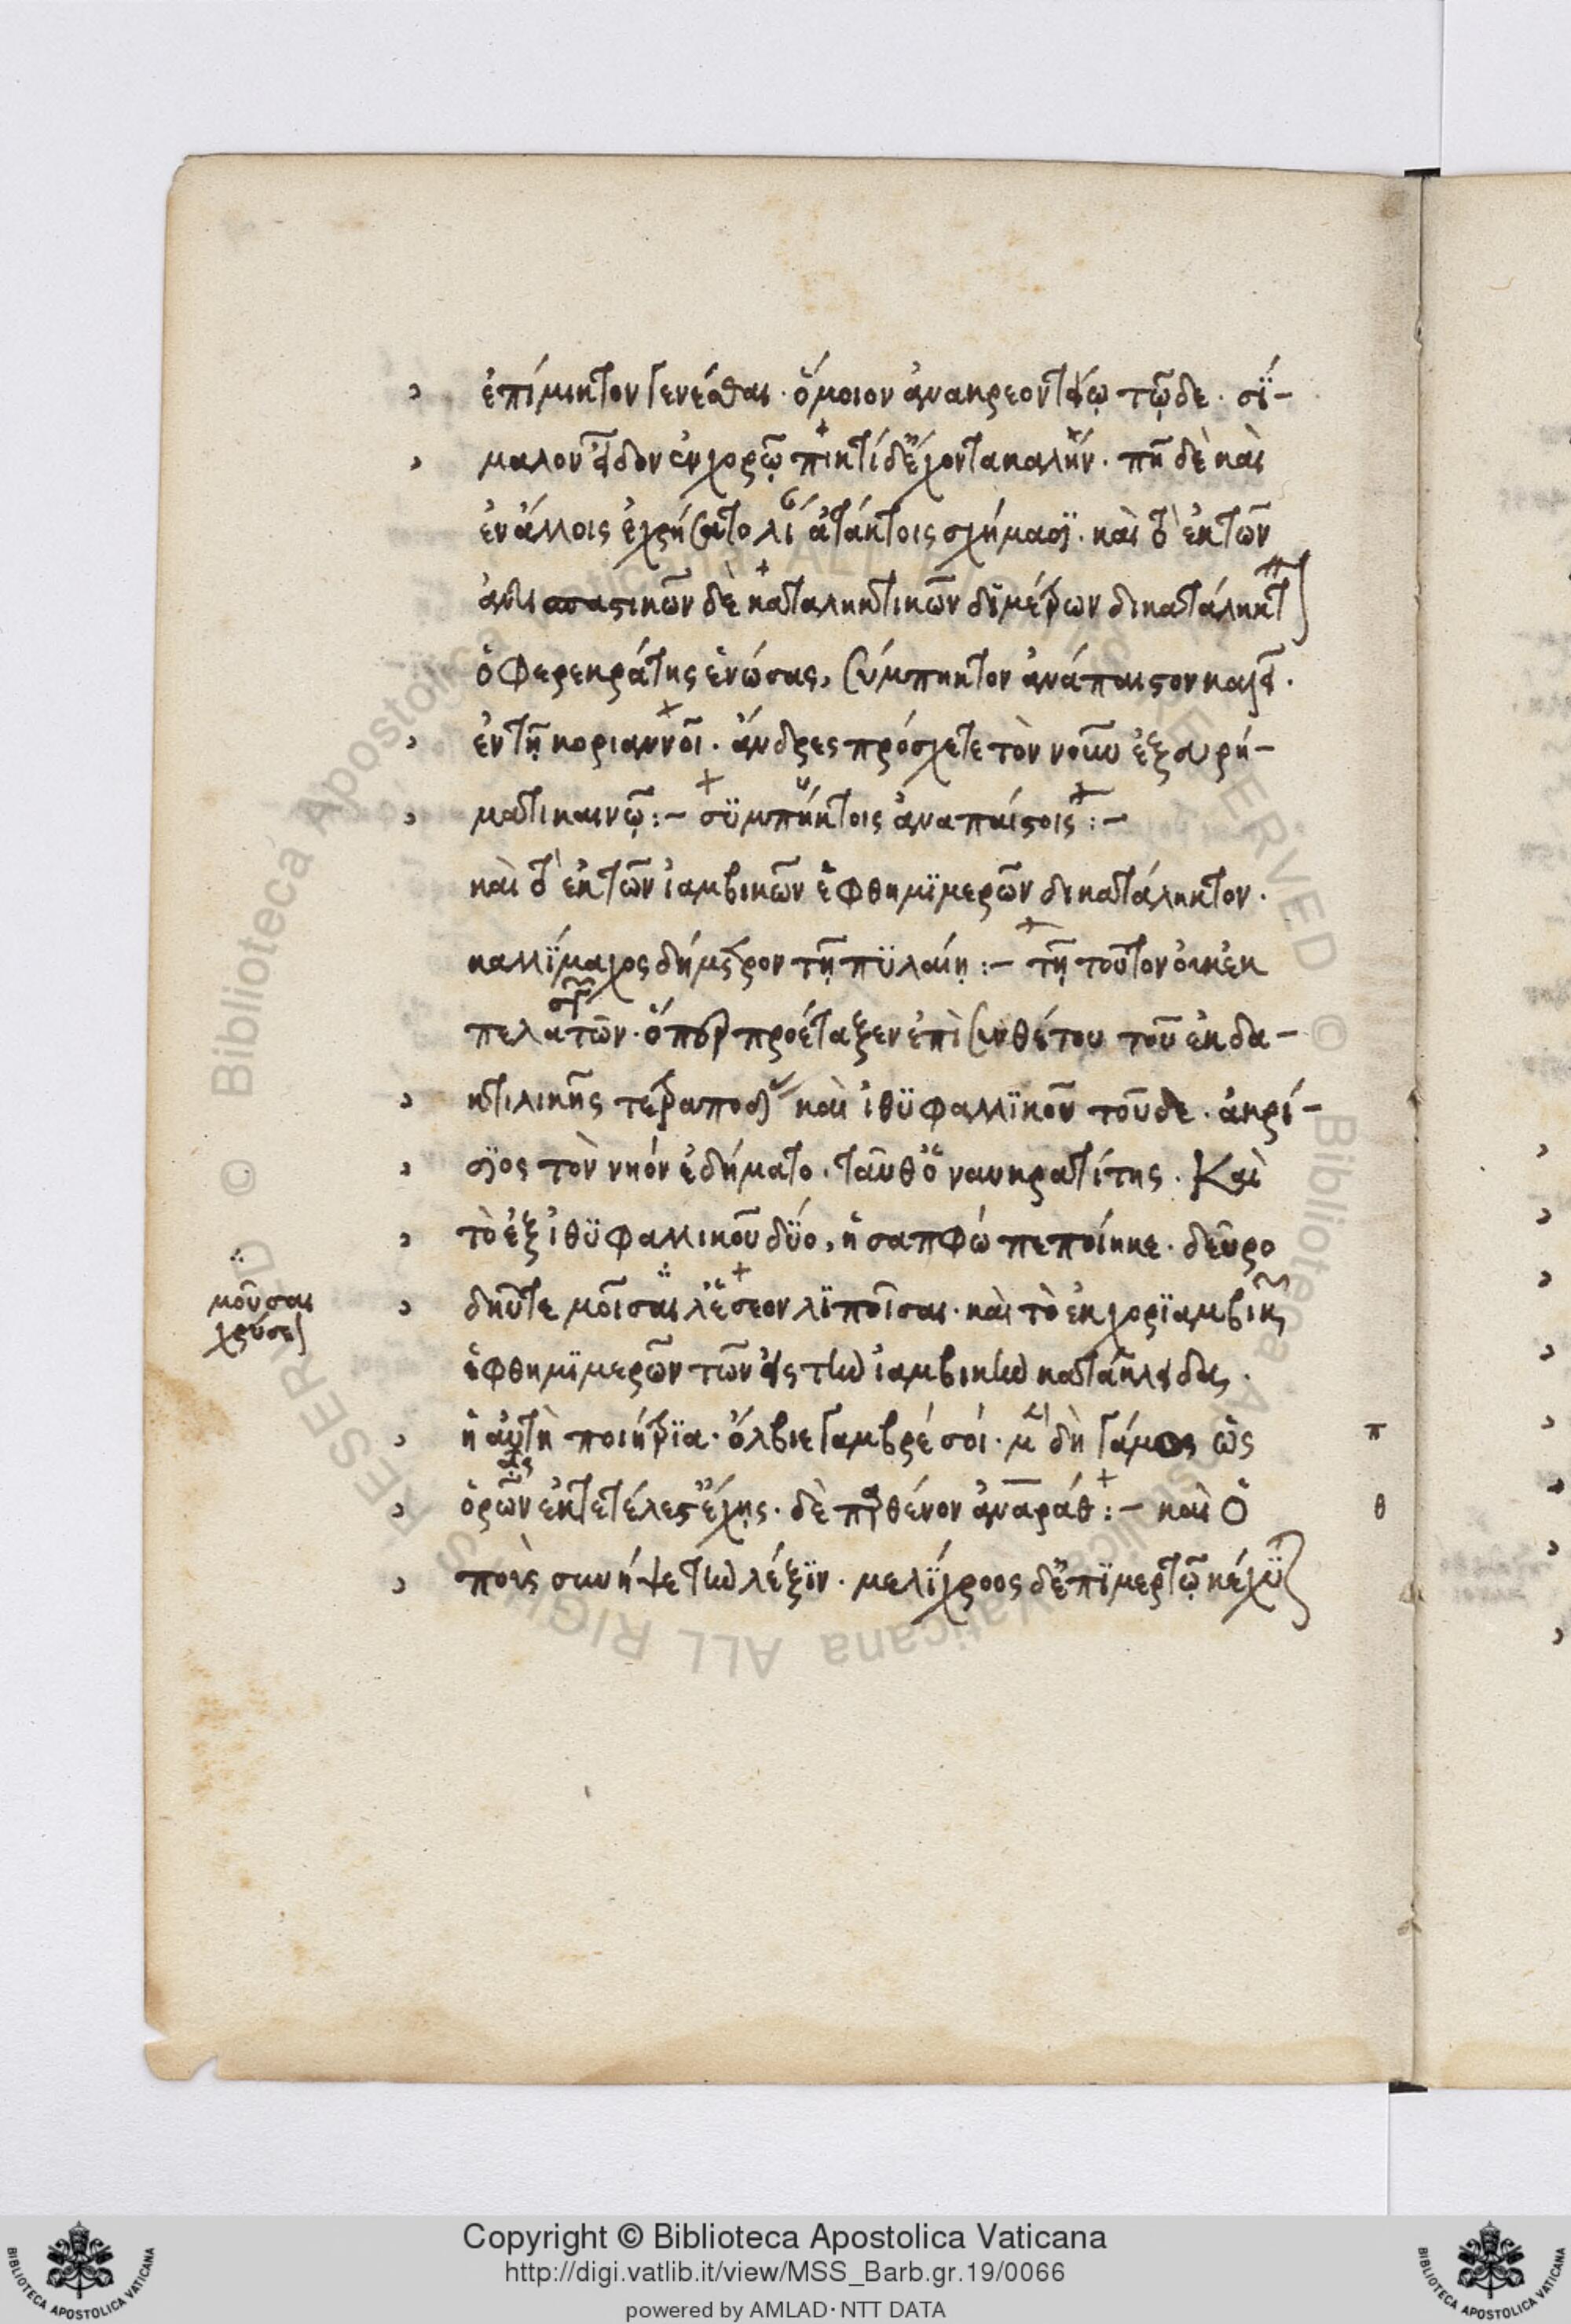 ἐπίμικτον γενέσθαι · ὅμοιον ἀνακρεοντείω τῶδε · σϊ-
μαλον εἶδον ἐν χορῶ πικτίδ' ἔχοντα καλήν · πῆ δὲ καὶ
ἐν ἄλλοις ἐχρήσατο ἀτάκτοις σχήμασϊ · καὶ τὸ ἐκ τῶν
δὲ καταληκτικῶν διμέτρων δικατάληκτ
ὁ Φερεκράτης ἑνώσας, σύμπηκτον ἀνάπαιστον καλεῖ ·
ἐν τῆ κοριαννοῖ · ἄνδρες πρόσχετε τὸν νοῦν ἐξευρή-
ματι καινῶ :- σϋμπήκτοις ἀναπαίστοις :-
καὶ τὸ ἐκ τῶν ἰαμβικῶν ἑφθημϊμερῶν δικατάληκτον ·
καλλΐμαχος δήμητρον τῆ πϋλαίη :- τῆ τοῦτον οἰκ ἐκ
πελατῶν · ὅπερ προέταξεν ἐπὶ συνθέτου τοῦ ἐκ δα-
κτιλικῆς τετραποδ καὶ ἰθϋφαλλϊκοῦ τοῦδε · ἀκρί-
σϊος τὸν νηὸν ἐδήματο · ταῦθ' ὁ ναυκρατίτης · Καὶ
τὸ ἐξ ἰθϋφαλλικοῦ δϋο, ἡ σαπφώ πεποίηκε · δεῦρο
δηῦτε μοῖσαι λϊποῖσαι · καὶ τὸ ἐκ χορϊαμβικῶν
ἑφθημϊμερῶν τῶν εἰς τὴν ἰαμβικὴν κατάκλειδα ·
ἡ αὐτὴ ποιήτρϊα · ὄλβιε γαμβρέ σοί · μ δὴ γάμος ὡς
ἐκτετέλεστ' ἔχης · δὲ παρθένον :- καὶ ὁ
ποεὶς συνήψε τὴν λέξϊν · μελΐχροος δ' ἐπ' ϊμερτῶ κέχϋ
μοῦσαι
χρύσε
π
θ
Copyright © Biblioteca Apostolica Vaticana
http://digi.vatlib.it/view/MSS_Barb.gr.19/0066
powered by AMLAD·NTT DATA